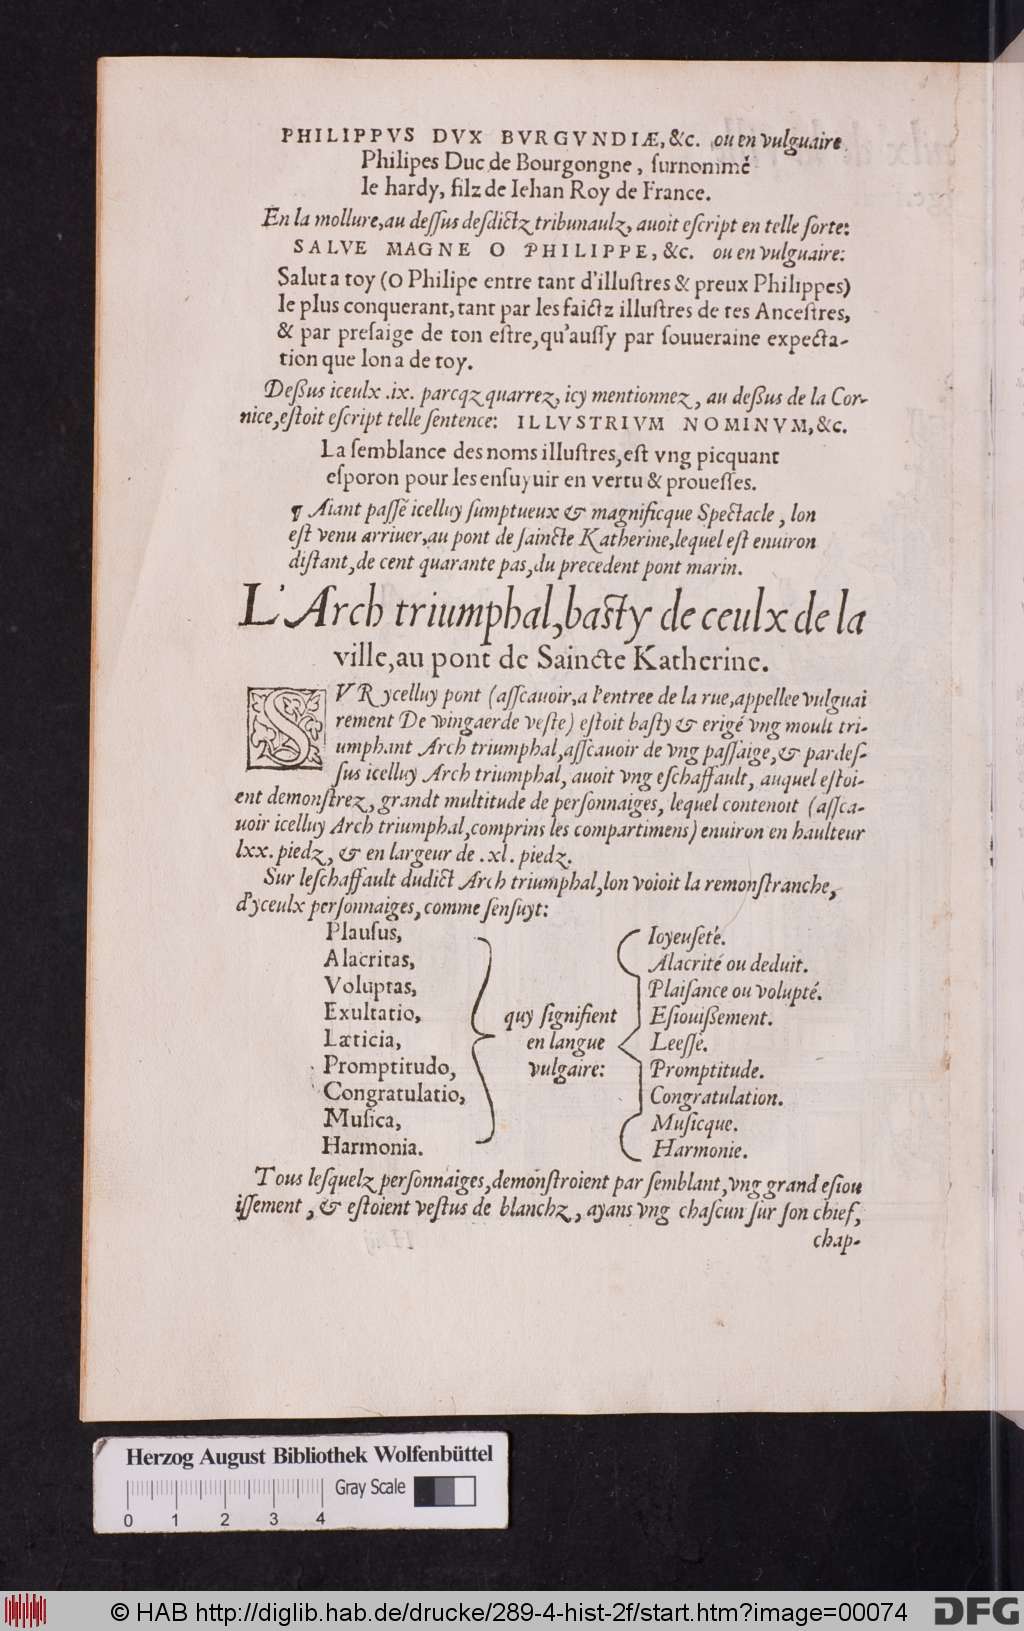 PHILIPPVS DVX BVRGVNDIÆ, &c. ou en vulguaire
Philipes Duc de Bourgongne, ſurnommé
le hardy, filz de Iehan Roy de France.
En la mollure, au deſſus deſdictz tribunaulz, auoit eſcript en telle ſorte:
SALVE MAGNE O PHILIPPE, &c. ou en vulguaire:
Salut a toy (O Philipe entre tant d'illuſtres & preux Philippes)
le plus conquerant, tant par les faictz illuſtres de tes Anceſtres,
& par preſaige de ton eſtre, qu'auſſy par ſouueraine expecta-
tion que lon a de toy.
Deßus iceulx .ix. parcqz quarrez, icy mentionnez, au deßus de la Cor-
nice, eſtoit eſcript telle ſentence: ILLVSTRIVM NOMINVM, &c.
La ſemblance des noms illuſtres, eſt vng picquant
eſporon pour les enſuyuir en vertu & proueſſes.
¶ Aiant paſſé icelluy ſumptueux & magnificque Spectacle, lon
eſt venu arriuer, au pont de ſaincte Katherine, lequel eſt enuiron
diſtant, de cent quarante pas, du precedent pont marin.
L'Arch triumphal, baſty de ceulx de la
ville, au pont de Saincte Katherine.
SVR ycelluy pont (aſſcauoir, a l'entree de la rue, appellee vulguai
rement De wingaerde veſte) eſtoit baſty & erigé vng moult tri-
umphant Arch triumphal, aſſcauoir de vng paſſaige, & par deſ-
ſus icelluy Arch triumphal, auoit vng eſchaffault, auquel eſtoi-
ent demonſtrez, grandt multitude de perſonnaiges, lequel contenoit (aſſca-
uoir icelluy Arch triumphal, comprins les compartimens) enuiron en haulteur
lxx. piedz, & en largeur de .xl. piedz.
Sur leſchaffault dudict Arch triumphal, lon voioit la remonſtranche,
d'yceulx perſonnaiges, comme ſenſuyt:
Plauſus,
Alacritas,
Voluptas,
Exultatio,
Læticia,
Promptitudo,
Congratulatio,
Muſica,
Harmonia.
quy ſignifient
en langue
vulgaire:
Ioyeuſeté.
Alacrité ou deduit.
Plaiſance ou volupté.
Eſiouißement.
Leeſſe.
Promptitude.
Congratulation.
Muſicque.
Harmonie.
Tous leſquelz perſonnaiges, demonſtroient par ſemblant, vng grand eſiou
iſſement, & eſtoient veſtus de blanchz, ayans vng chaſcun ſur ſon chief,
chap-
Herzog August Bibliothek Wolfenbüttel
Gray Scale
0 1 2 3 4
© HAB http://diglib.hab.de/drucke/289-4-hist-2f/start.htm?image=00074
DFG